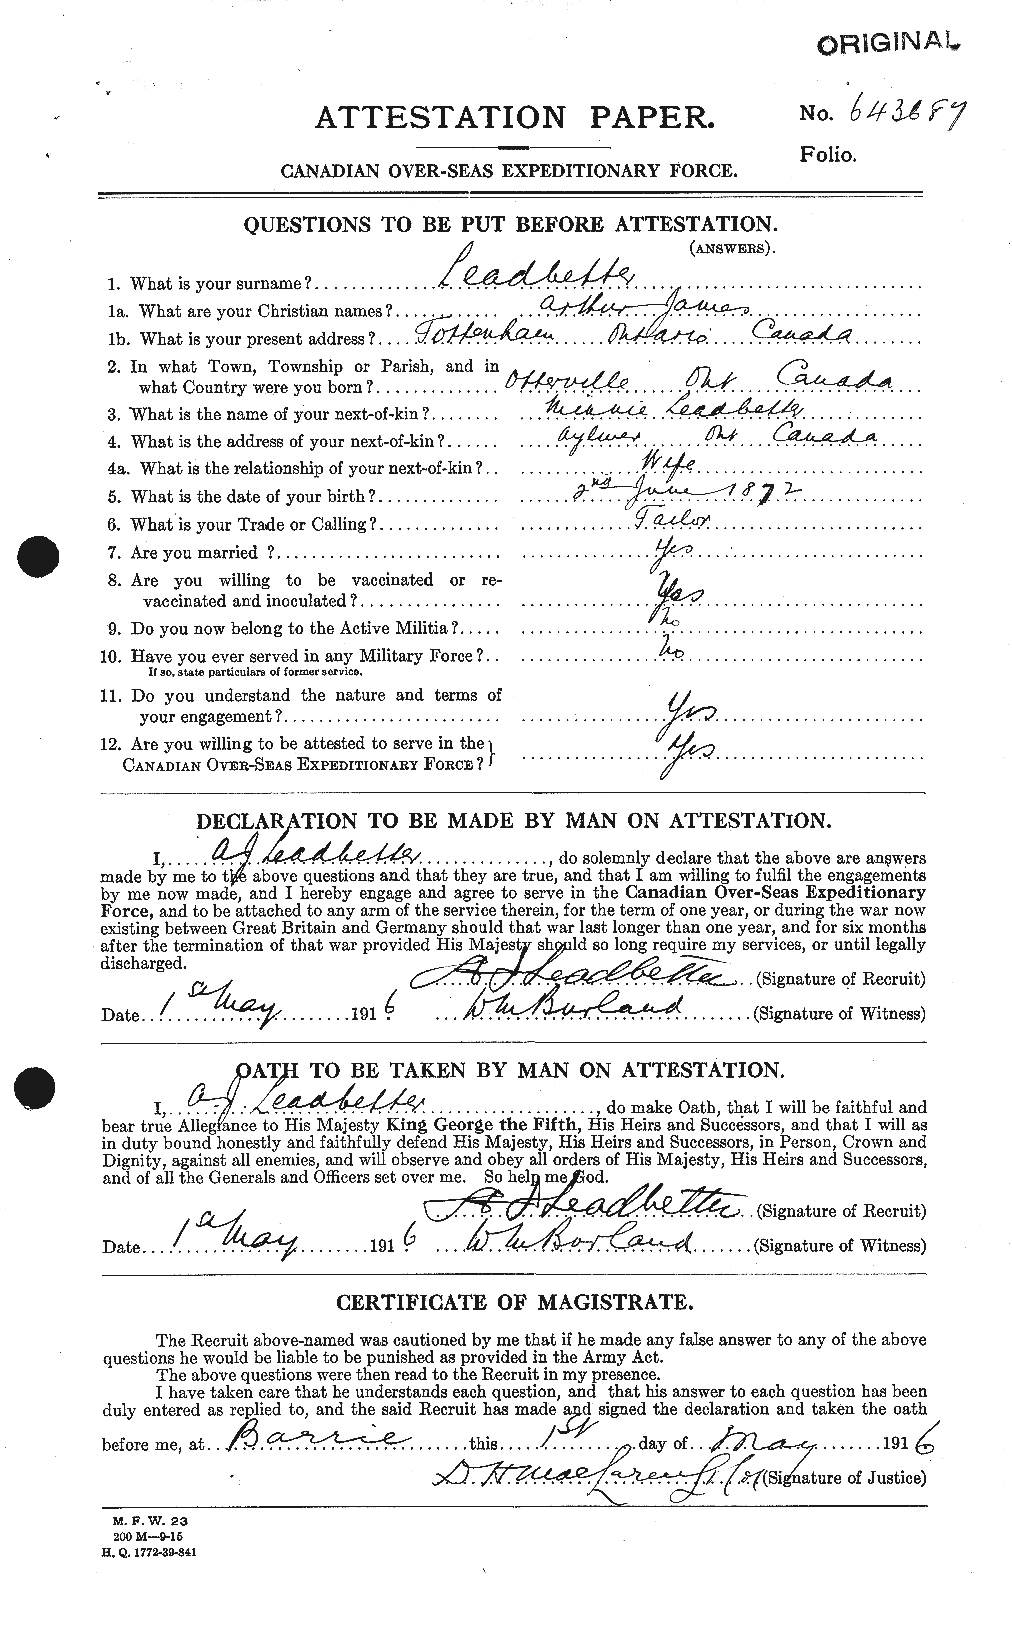 ORIGINAL
ATTESTATION PAPER.
No. 643687
Folio.
CANADIAN OVER-SEAS EXPEDITIONARY FORCE.
QUESTIONS TO BE PUT BEFORE ATTESTATION.
(ANSWERS).
1. What is your surname? Leadbetter
1a. What are your Christian names? Arthur James
1b. What is your present address? Tottenham Ontario Canada
2. In what Town, Township or Parish, and in
what Country were you born? Otterville Ont Canada
3. What is the name of your next-of-kin? Minnie Leadbetter
4. What is the address of your next-of-kin? Aylmer Ont Canada
4a. What is the relationship of your next-of-kin? Wife
5. What is the date of your birth? 2nd June 1872
6. What is your Trade or Calling? Tailor
7. Are you married ? Yes
8. Are you willing to be vaccinated or re-
vaccinated and inoculated? Yes
9. Do you now belong to the Active Militia? No
10. Have you ever served in any Military Force? No
If so, state particulars of former service.
11. Do you understand the nature and terms of
your engagement? Yes
12. Are you willing to be attested to serve in the
CANADIAN OVER-SEAS EXPEDITIONARY FORCE? Yes
DECLARATION TO BE MADE BY MAN ON ATTESTATION.
I, A J Leadbetter, do solemnly declare that the above are answers
made by me to the above questions and that they are true, and that I am willing to fulfil the engagements
by me now made, and I hereby engage and agree to serve in the Canadian Over-Seas Expeditionary
Force, and to be attached to any arm of the service therein, for the term of one year, or during the war now
existing between Great Britain and Germany should that war last longer than one year, and for six months
after the termination of that war provided His Majesty should so long require my services, or until legally
discharged.
A J Leadbetter (Signature of Recruit)
Date 1st May 1916 Wm Borland (Signature of Witness)
OATH TO BE TAKEN BY MAN ON ATTESTATION.
I, A J Leadbetter, do make Oath, that I will be faithful and
bear true Allegiance to His Majesty King George the Fifth, His Heirs and Successors, and that I will as
in duty bound honestly and faithfully defend His Majesty, His Heirs and Successors, in Person, Crown and
Dignity, against all enemies, and will observe and obey all orders of His Majesty, His Heirs and Successors,
and of all the Generals and Officers set over me. So help me God.
A J Leadbetter (Signature of Recruit)
Date 1st May 1916 Wm Borland (Signature of Witness)
CERTIFICATE OF MAGISTRATE.
The Recruit above-named was cautioned by me that if he made any false answer to any of the above
questions he would be liable to be punished as provided in the Army Act.
The above questions were then read to the Recruit in my presence.
I have taken care that he understands each question, and that his answer to each question has been
duly entered as replied to, and the said Recruit has made and signed the declaration and taken the oath
before me, at Barrie this 1st day of May 1916
D. H. MacLaren Lt. Col (Signature of Justice)
M. F. W. 23
200 M—9-15
H. Q. 1772-39-841